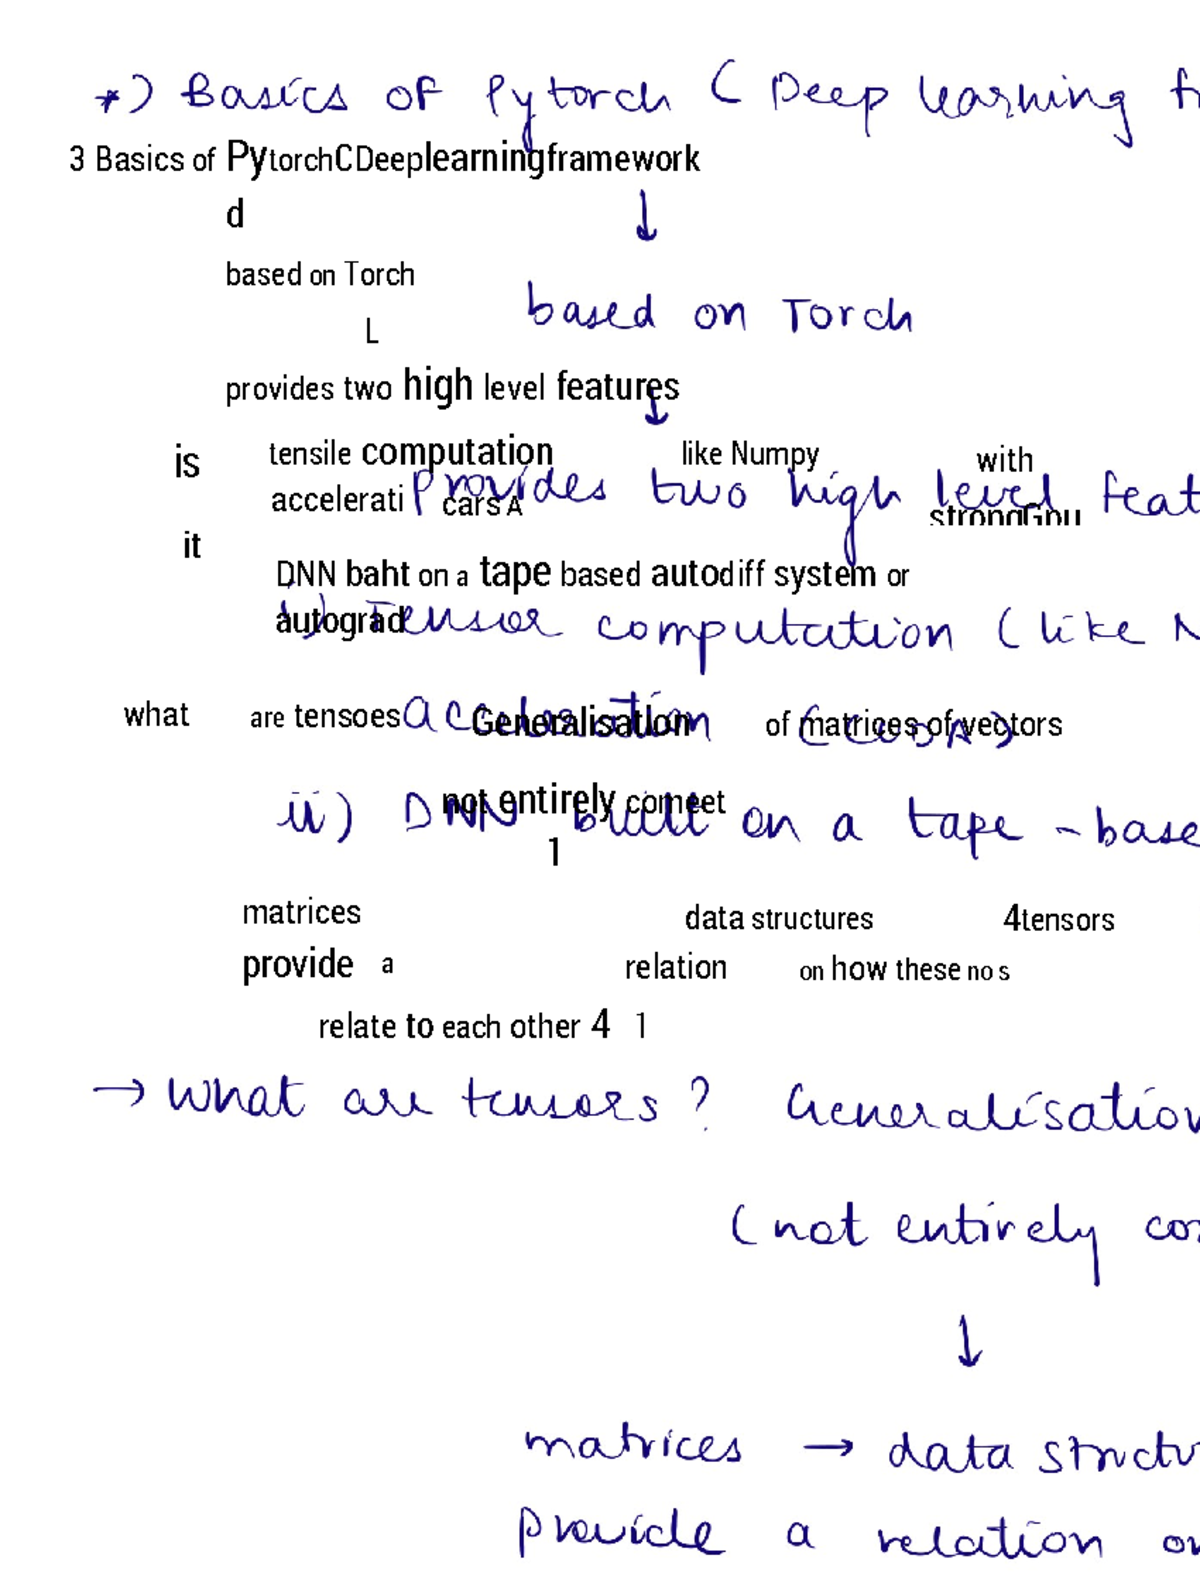 *) Basics of Pytorch ( Deep learning fr
3 Basics of PytorchCDeeplearningframework
d
↓
based on Torch
based on Torch
L
provides two high level features
↓
is tensile computation like Numpy with
provides two high level feat
accelerati cars A strongGpu
it
DNN baht on a tape based autodiff system or
autograd
i) Tensor computation ( like N
what are tensoes Generalisation of matrices of vectors
acceleration (CUDA)
not entirely comeet
ii) DNN built on a tape - base
1
matrices data structures 4tensors
provide a relation on how these no s
relate to each other 4 1
→ What are tensors ? Generalisation
( not entirely cor
↓
matrices → data structu
provide a relation on